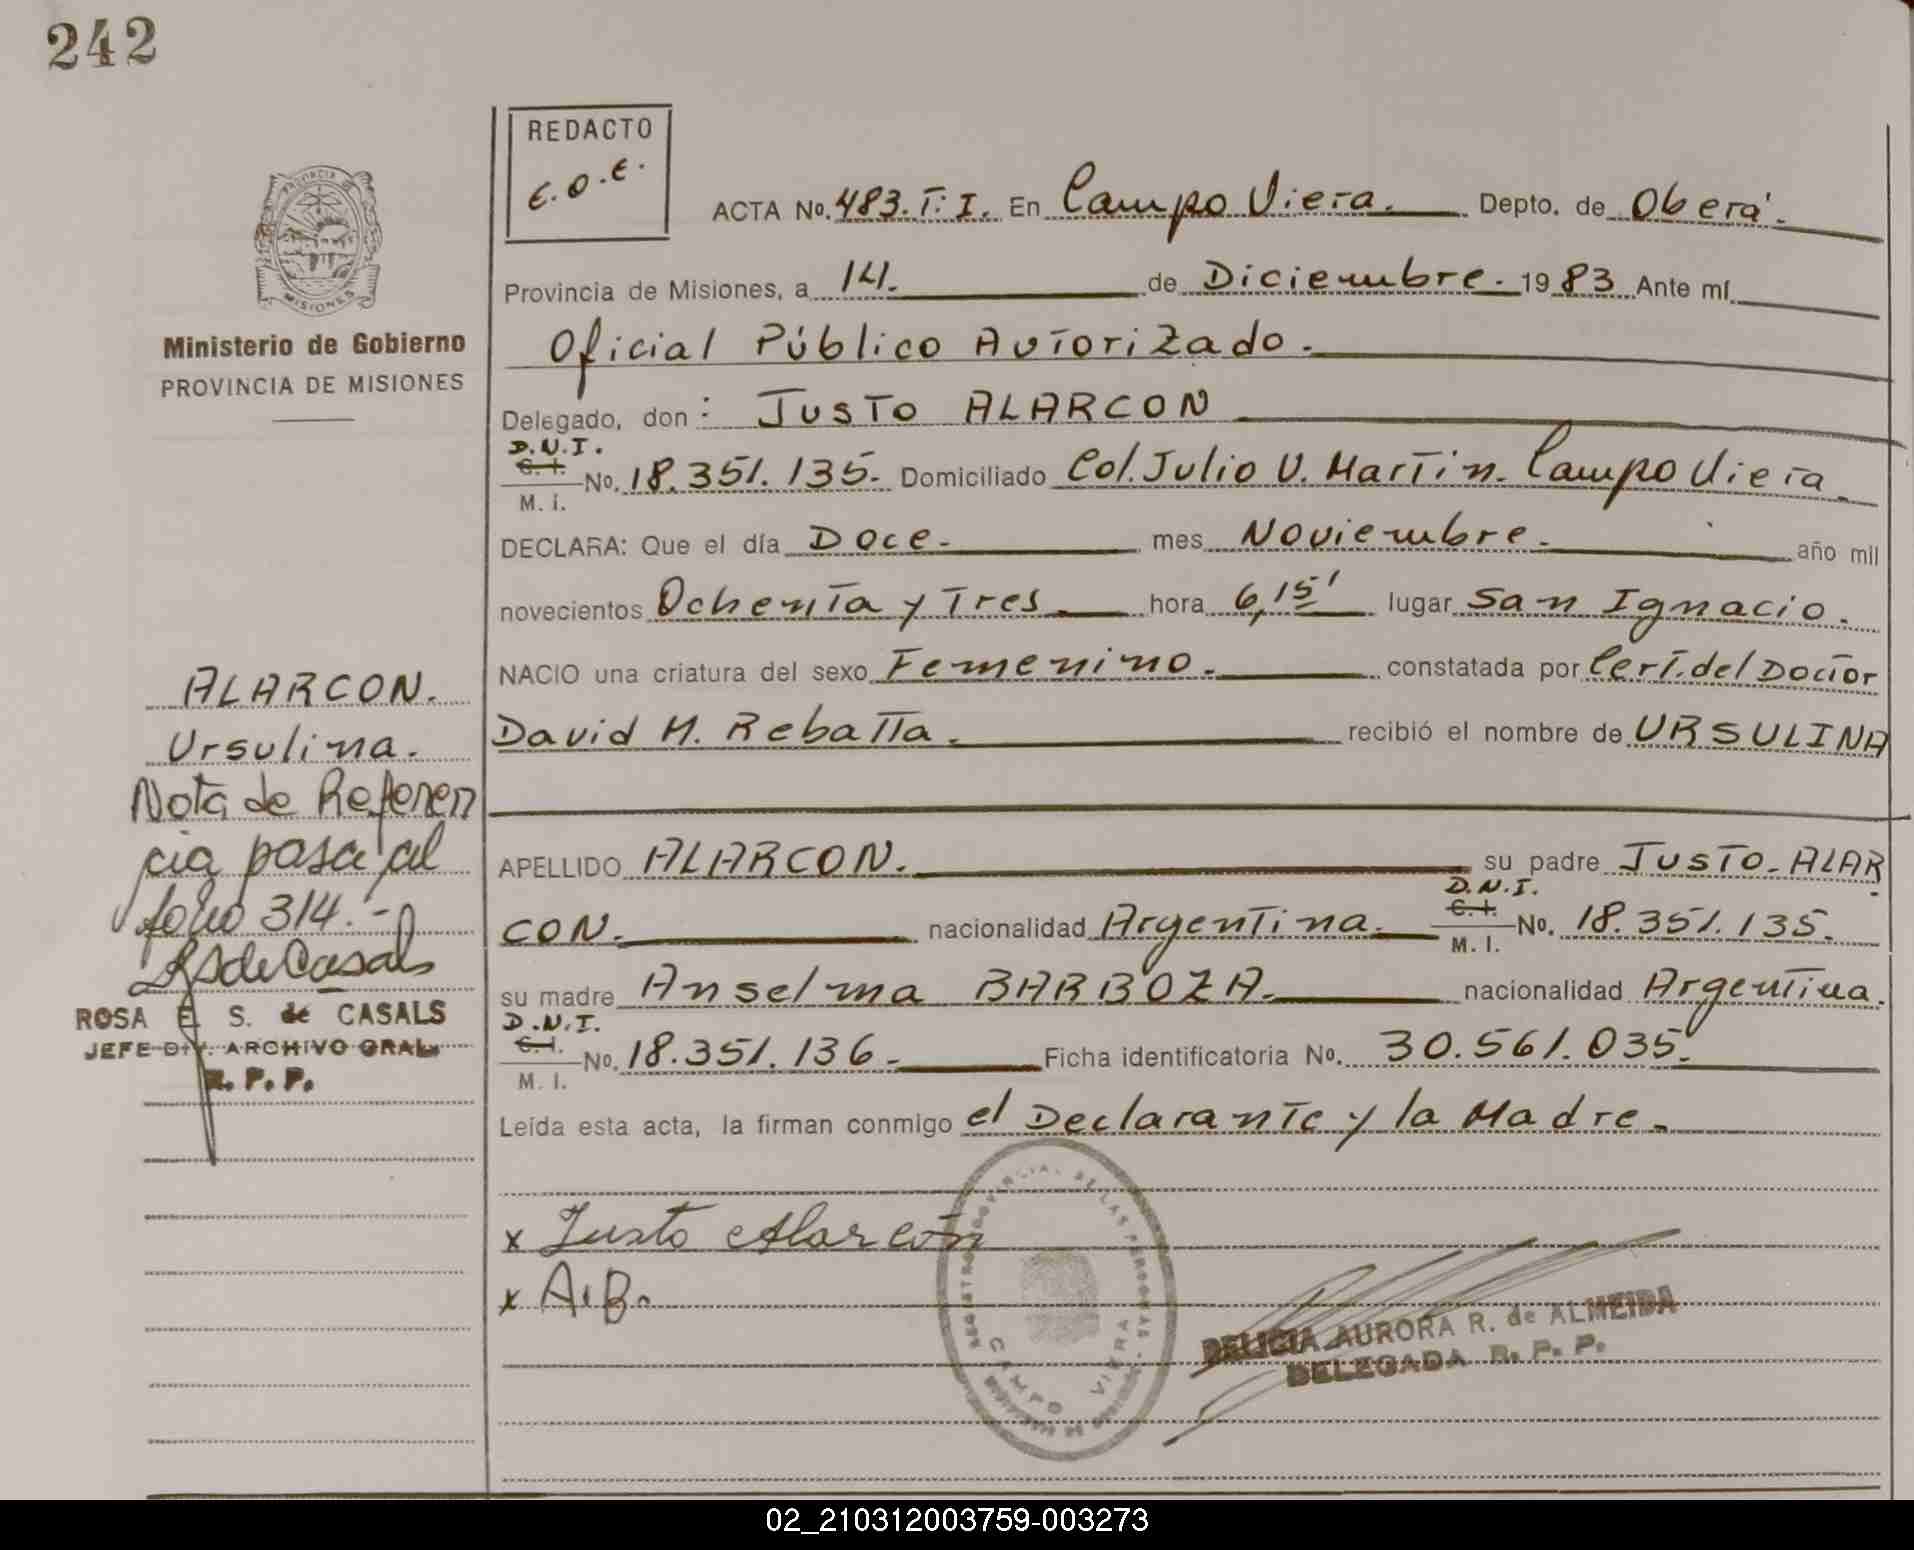 242
REDACTO
E.O.E.
ACTA No. 483.T: I. En Campo Viera. Depto. de Oberá.
Provincia de Misiones, a 14. de Diciembre. 1983 Ante mí
Oficial Público Autorizado.
Delegado, don: Justo ALARCON
D.N.I.
C. I.
M. I.
No. 18.351.135. Domiciliado Col. Julio U. Martin. Campo Viera.
DECLARA: Que el día Doce. mes Noviembre. año mil
novecientos Ochenta y Tres hora 6,15' lugar San Ignacio.
NACIO una criatura del sexo Femenino. constatada por Cert. del Doctor
David M. Rebatta. recibió el nombre de URSULINA
APELLIDO ALARCON. su padre Justo. ALAR
CON. nacionalidad Argentina. D.N.I. C. I. M. I. No. 18.351.135.
su madre Anselma BARBOZA. nacionalidad Argentina.
D.N.I.
C. I.
M. I.
No. 18.351.136. Ficha identificatoria No. 30.561.035.
Leída esta acta, la firman conmigo el Declarante y la Madre.
x Justo Alarcón
x A.B.
REGISTRO PROVINCIAL DE LAS PERSONAS
CAMPO VIERA
DELICIA AURORA R. de ALMEIDA
DELEGADA R. P. P.
PROVINCIA DE
MISIONES
Ministerio de Gobierno
PROVINCIA DE MISIONES
ALARCON.
Ursulina.
Nota de Referen
cia pasa al
folio 314.-
RSdeCasals
ROSA E. S. de CASALS
JEFE DIV. ARCHIVO GRAL.
R. P. P.
02_210312003759-003273